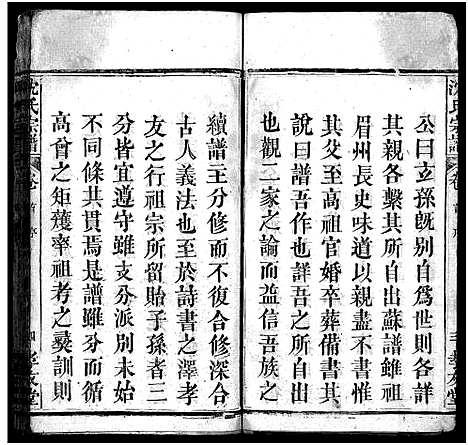 沈氏宗譜 卷首 序 三 孝友堂
公曰玄孫既别自爲世則各詳
其親各繫其所出蘇譜雖祖
眉州長史味道以親盡不書惟
其父至高祖官婚卒葬備書其
說曰譜吾作也詳吾之所自出
也觀二家之諭而益信吾族之
續譜主分修而不復合修深合
古人義法也至於詩書之澤孝
友之行祖宗所留貽子孫者三
分皆宜遵守雖支分派别未始
不同條共貫焉是譜雖分而循
高曾之矩矱率祖考之彞訓則
沈氏宗譜 卷首 序 四 孝友堂